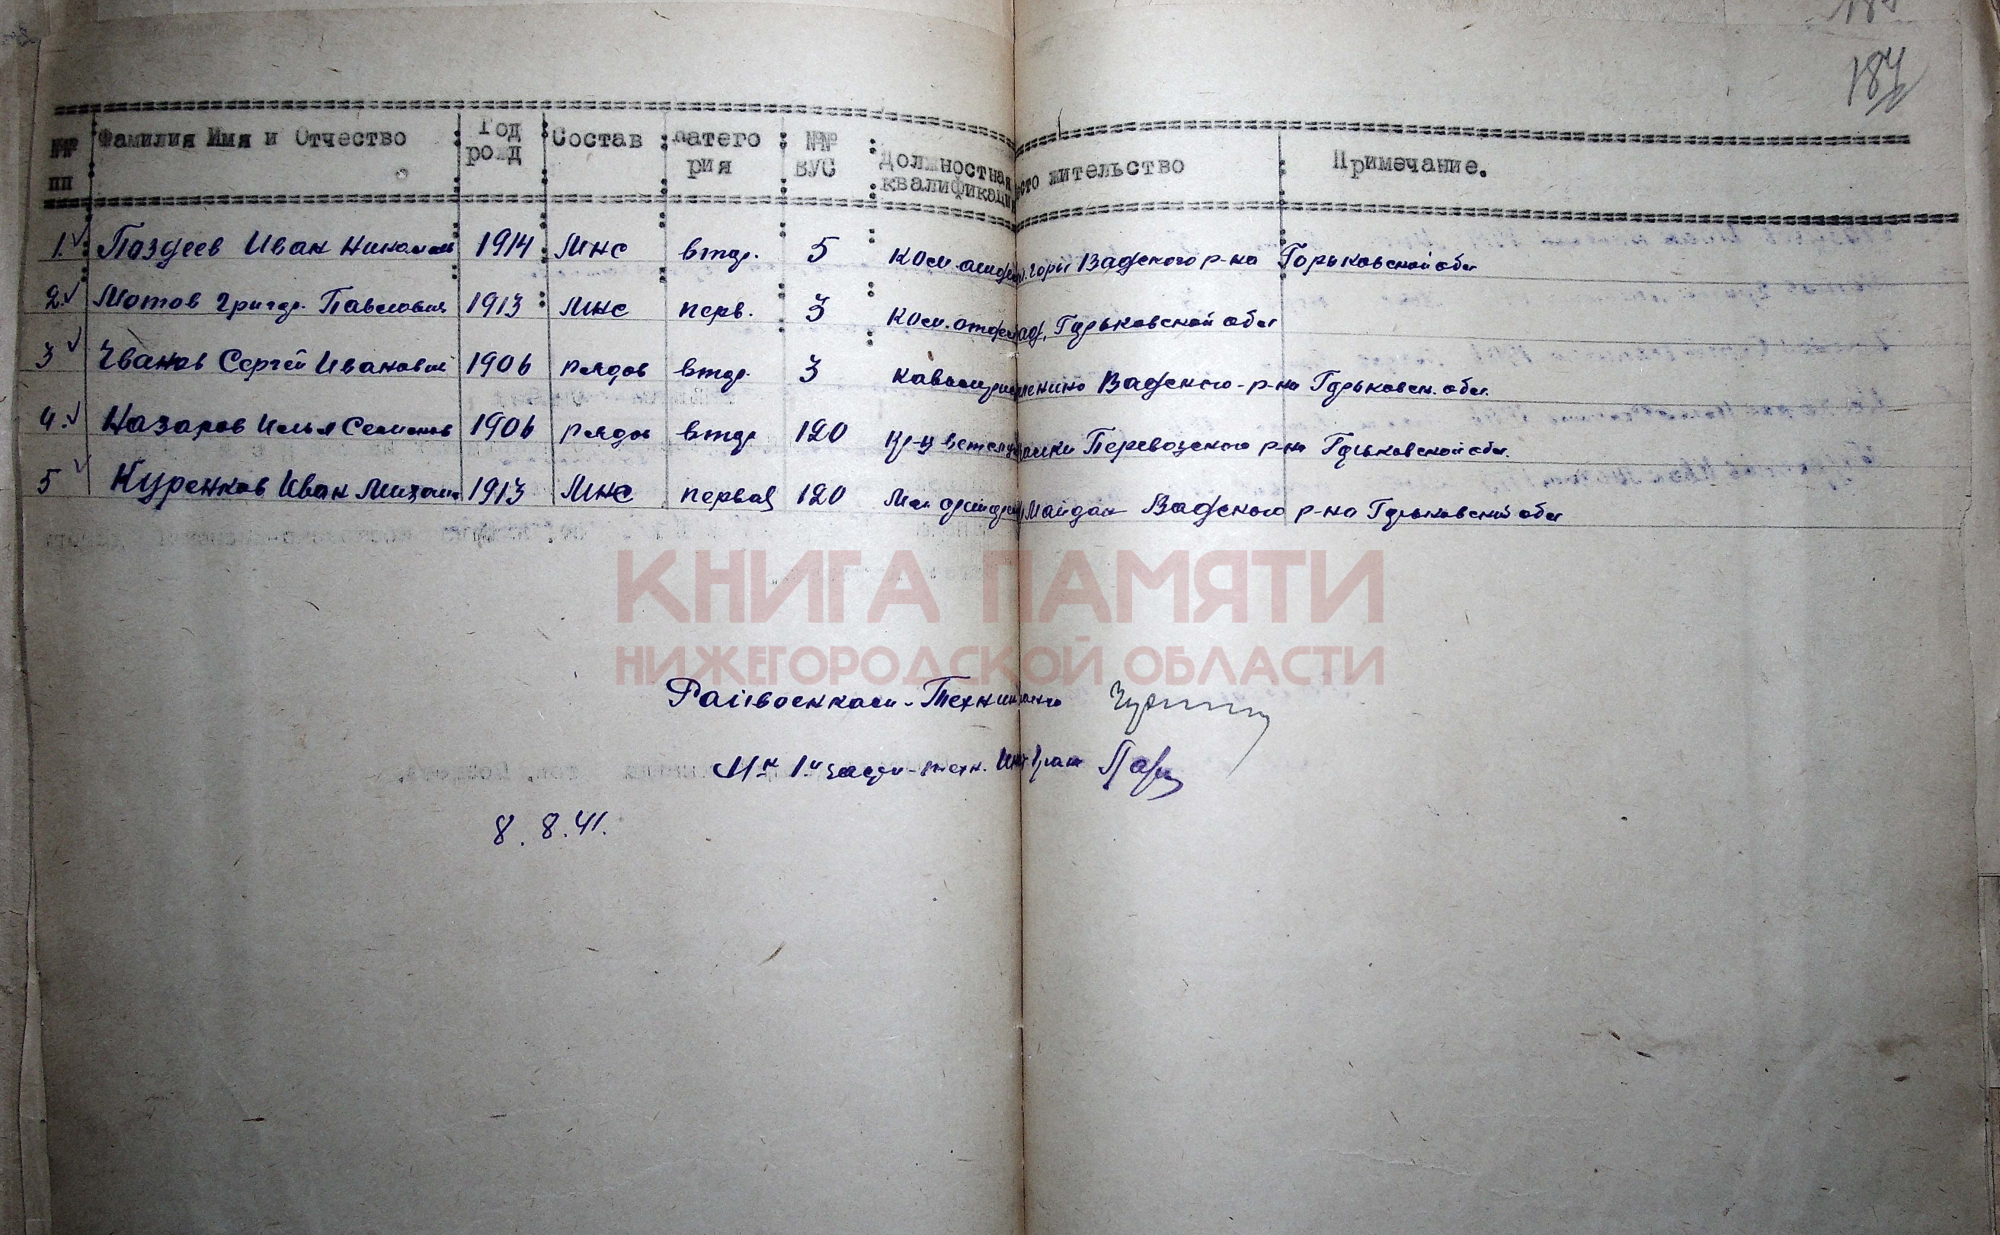 184
№№ пп Фамилия Имя и Отчество Год рожд Состав катего рия №№ ВУС Должностная квалификаци сто жительство Примечание.
1. Паздеев Иван Николаев 1914 МНС втор. 5 Ком. отдел Горы Вадского р-на Горьковской обл
2. Мотов Григор. Павлович 1913 МНС перв. 3 Ком. отдел Вад, Горьковской обл
3 Иванов Сергей Иванович 1906 рядов втор. 3 кавалерис Вадского р-на Горьковск. обл.
4. Назаров Илья Семенов 1906 рядов втор 120 Перевозского р-на Горьковской обл.
5 Куренков Иван Михаил 1913 МНС первая 120 Майдан Вадского р-на Горьковской обл
КНИГА ПАМЯТИ
НИЖЕГОРОДСКОЙ ОБЛАСТИ
Райвоенком - Техник
Н-к 1-й части - техн. Инт I ранга
8. 8. 41.